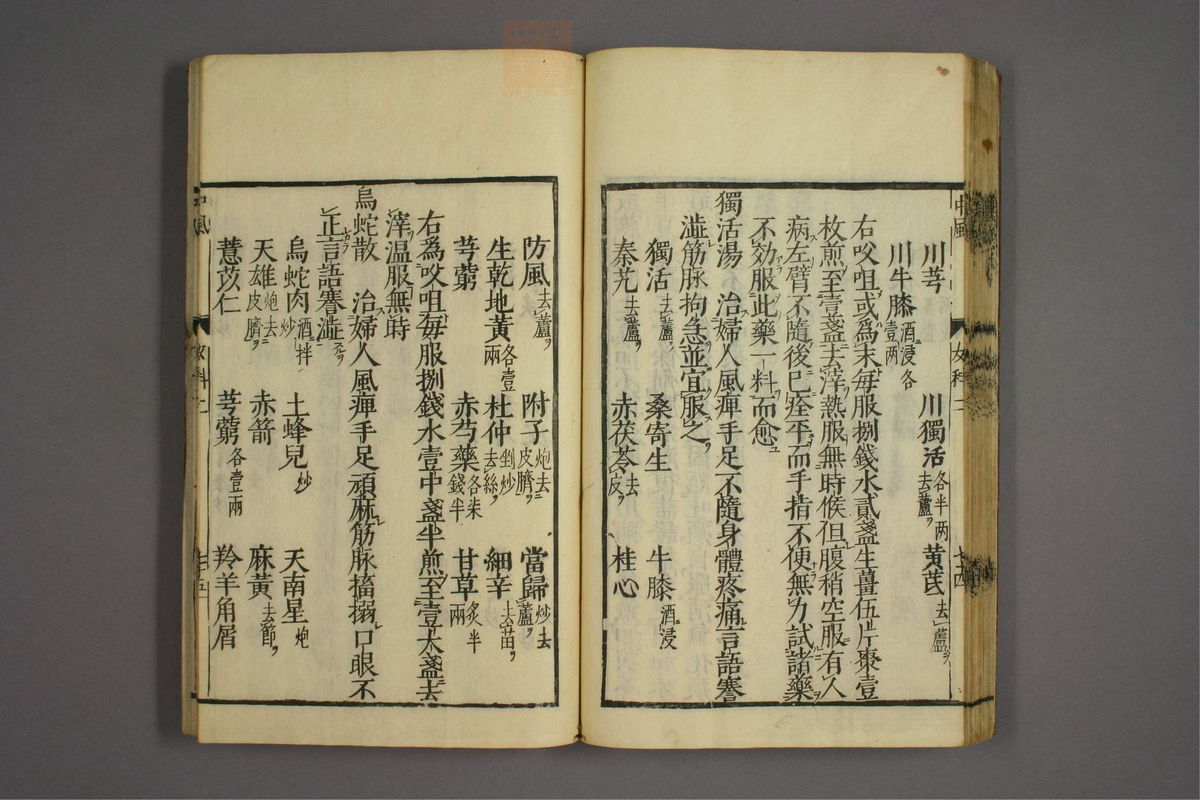 川芎 川獨活各半两去蘆 黄芪去蘆
川牛膝酒浸各壹两
右㕮咀或爲末每服捌錢水貳盞生薑伍片棗壹
枚煎至壹盞去滓熱服無時候但腹稍空服有人
病左臂不隨後已痊平而手指不便無力試諸藥
不効服此藥一料而愈
獨活湯 治婦人風痺手足不隨身體疼痛言語蹇
澁筋脉拘急並宜服之
獨活去蘆 桑寄生 牛膝酒浸
秦艽去蘆 赤茯苓去皮 桂心
防風去蘆 附子炮去皮臍 當歸炒去蘆
生乾地黄各壹兩 杜仲剉炒去絲 細辛去苗
芎藭 赤芍藥各柒錢半 甘草炙半兩
右爲㕮咀每服捌錢水壹中盞半煎至壹大盞去
滓溫服無時
烏蛇散 治婦人風痺手足頑麻筋脉搐搦口眼不
正言語蹇澁
烏蛇肉酒拌炒 土蜂兒炒 天南星炮
天雄炮去皮臍 赤箭 麻黄去節
薏苡仁 芎藭各壹兩 羚羊角屑
中風 女科二 七十四
中風 女科二 七十五